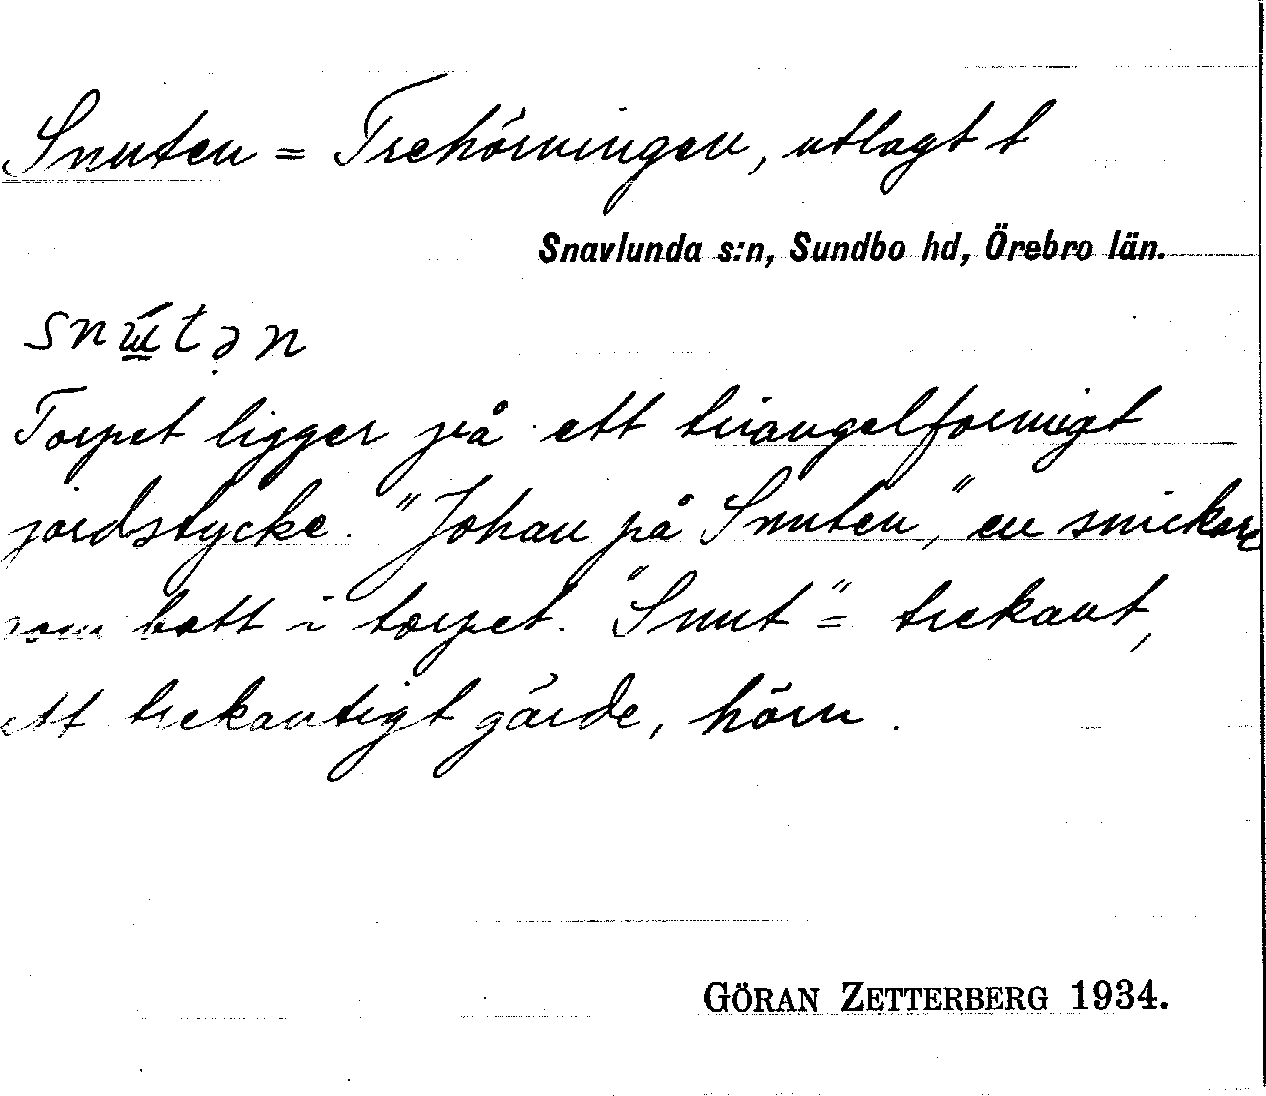 Snuten = Trehörningen, utlagt t
Snavlunda s:n, Sundbo hd, Örebro län.
snɯ́tən
Torpet ligger på ett triangelformigt
jordstycke. "Johan på Snuten", en snickare
som bott i torpet. "Snut" = trekant,
ett trekantigt gärde, hörn.
GÖRAN ZETTERBERG 1934.